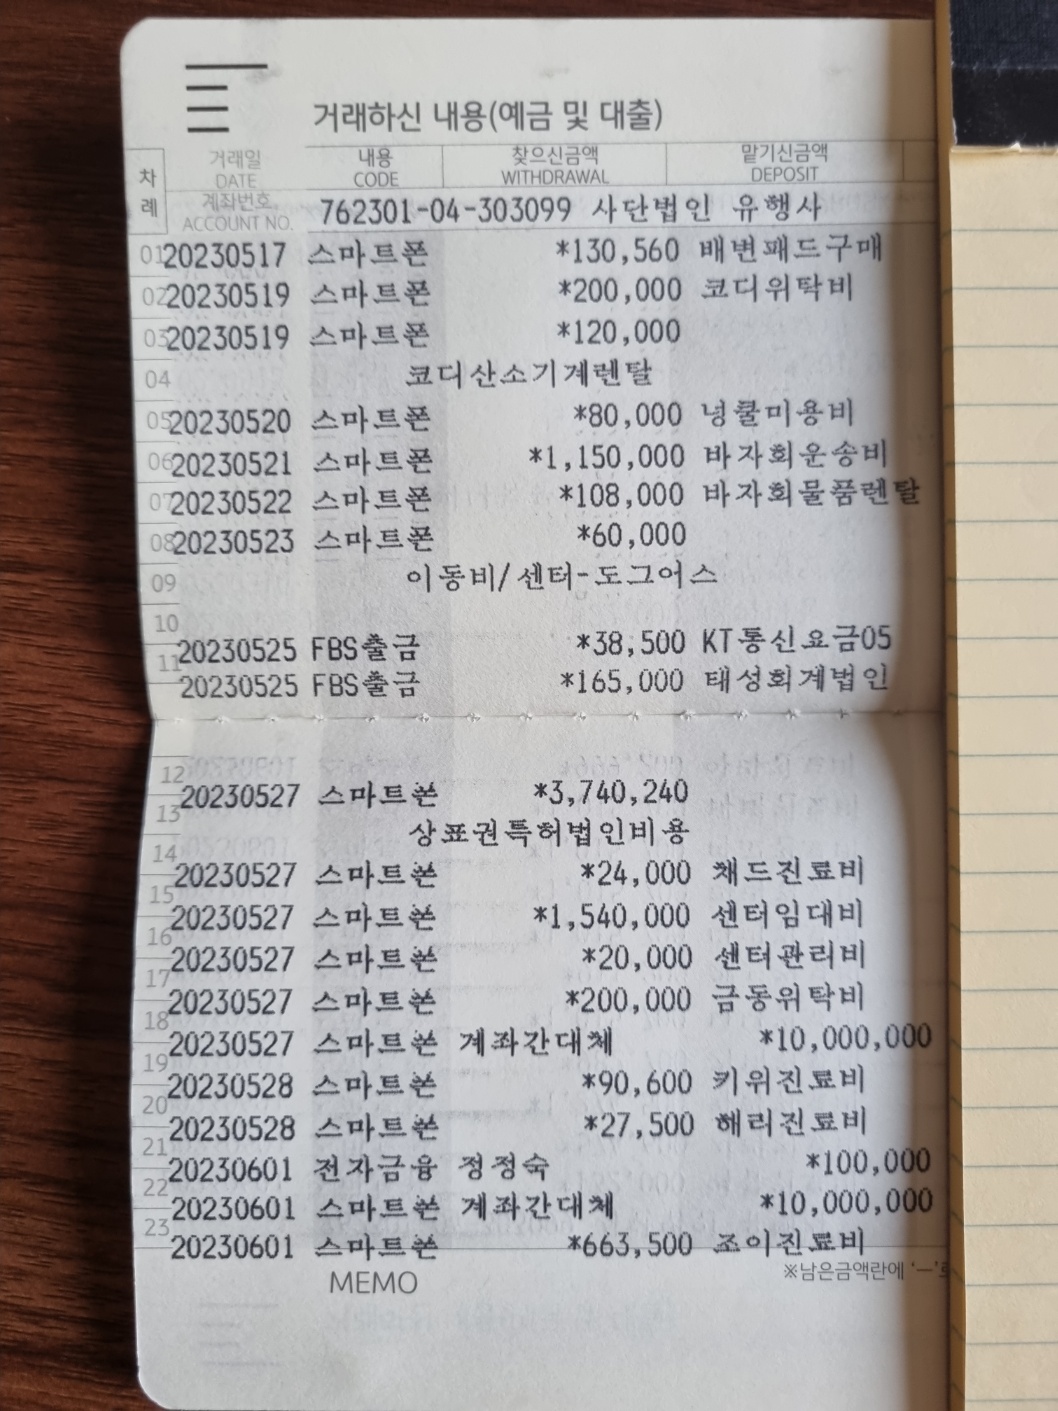 거래하신 내용(예금 및 대출)
차례 거래일 내용 찾으신금액 맡기신금액
DATE CODE WITHDRAWAL DEPOSIT
계좌번호 ACCOUNT NO. 762301-04-303099 사단법인 유행사
01 20230517 스마트폰 *130,560 배변패드구매
02 20230519 스마트폰 *200,000 코디위탁비
03 20230519 스마트폰 *120,000
04 코디산소기계렌탈
05 20230520 스마트폰 *80,000 넝쿨미용비
06 20230521 스마트폰 *1,150,000 바자회운송비
07 20230522 스마트폰 *108,000 바자회물품렌탈
08 20230523 스마트폰 *60,000
09 이동비/센터-도그어스
10
20230525 FBS출금 *38,500 KT통신요금05
11
20230525 FBS출금 *165,000 태성회계법인
12
20230527 스마트폰 *3,740,240
13 상표권특허법인비용
14
20230527 스마트폰 *24,000 채드진료비
15
20230527 스마트폰 *1,540,000 센터임대비
16
20230527 스마트폰 *20,000 센터관리비
17
20230527 스마트폰 *200,000 금동위탁비
18
20230527 스마트폰 계좌간대체 *10,000,000
19
20230528 스마트폰 *90,600 키위진료비
20
20230528 스마트폰 *27,500 해리진료비
21
20230601 전자금융 정정숙 *100,000
22
20230601 스마트폰 계좌간대체 *10,000,000
23
20230601 스마트폰 *663,500 조이진료비
MEMO
※남은금액란에 '-'로